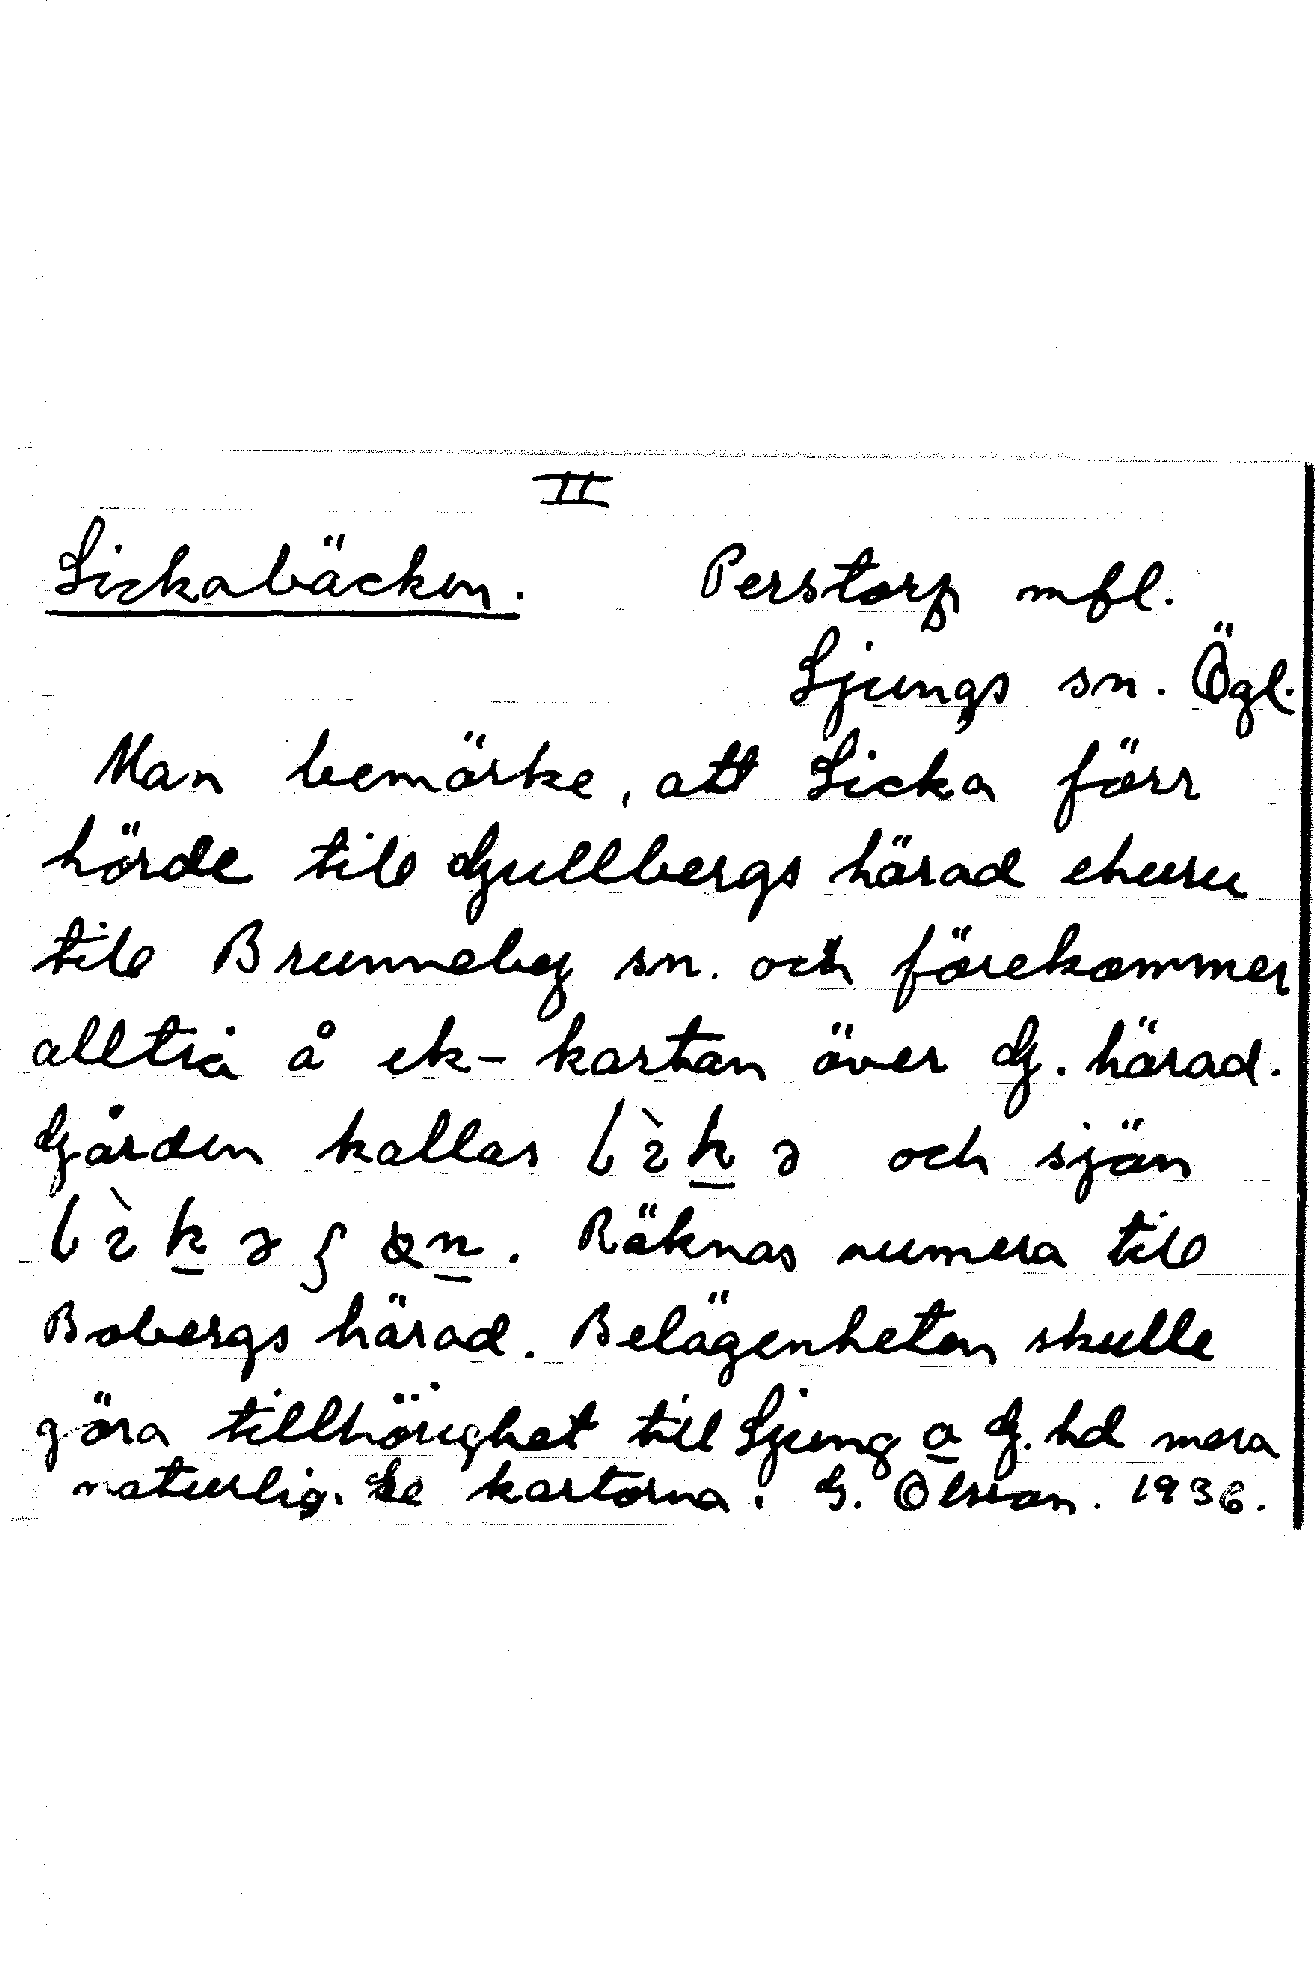 II
Lickabäcken. Perstorp mfl.
Ljungs sn. Ögl.
Man bemärke, att Licka förr
hörde till Gullbergs härad ehuru
till Brunneby sn. och förekommer
alltså å ek-kartan över G. härad.
Gården kallas och sjön
Räknas numera till
Bobergs härad. Belägenheten skulle
göra tillhörighet till Ljung o G. hd mera
naturlig. Se kartorna. G. Olsson. 1936.